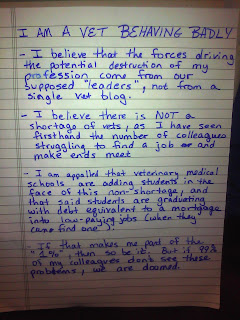 I AM A VET BEHAVING BADLY
- I believe that the forces driving
the potential destruction of my
profession come from our
supposed "leaders", not from a
single vet blog.
- I believe there is NOT a
shortage of vets, as I have seen
firsthand the number of colleagues
struggling to find a job or and
make ends meet
- I am appalled that veterinary medical
schools are adding students in the
face of this non-shortage, and
that said students are graduating
with debt equivalent to a mortgage
into low-paying jobs (when they
can find one)
- If that makes me part of the
"1%", then so be it. But if 99%
of my colleagues don't see these
problems, we are doomed.